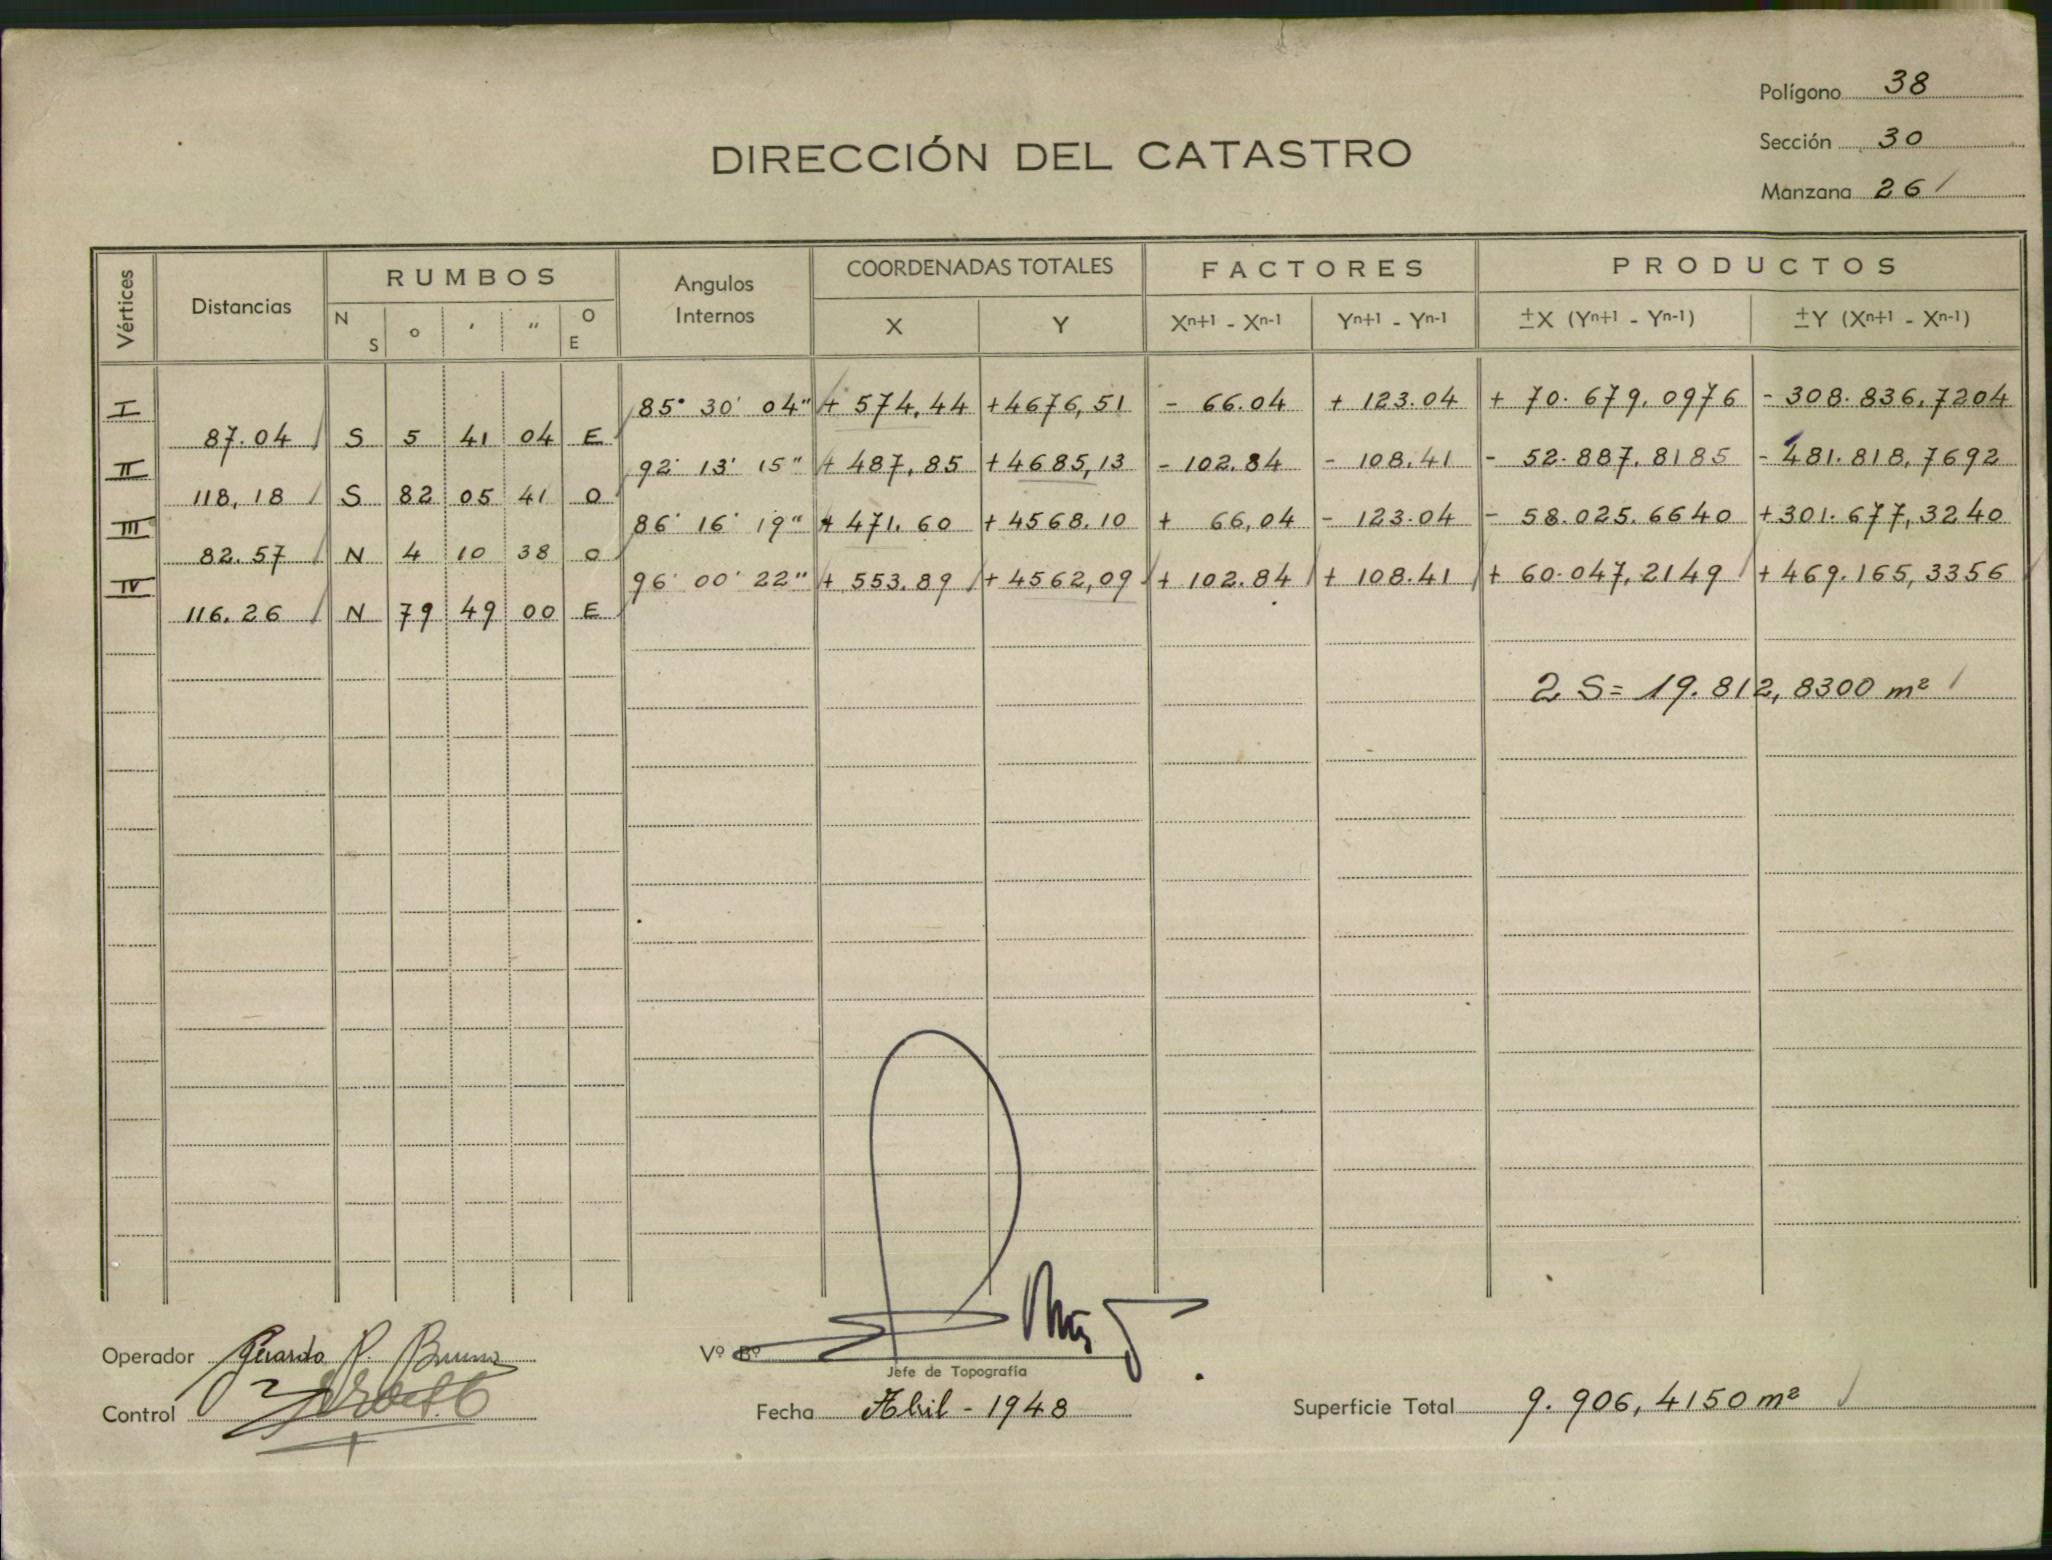 Polígono 38
DIRECCIÓN DEL CATASTRO
Sección 30
Manzana 26
Vértices Distancias RUMBOS Angulos Internos COORDENADAS TOTALES FACTORES PRODUCTOS
N S o ' " O E X Y Xn+1 - Xn-1 Yn+1 - Yn-1 ±X (Yn+1 - Yn-1) ±Y (Xn+1 - Xn-1)
I 85° 30' 04" + 574,44 +4676,51 - 66.04 + 123.04 + 70.679,0976 - 308.836,7204
87.04 S 5 41 04 E
II 92° 13' 15" + 487,85 +4685,13 - 102.84 - 108.41 - 52.887,8185 - 481.818,7692
118,18 S 82 05 41 O
III 86° 16' 19" + 471.60 + 4568.10 + 66,04 - 123.04 - 58.025.6640 +301.677,3240
82.57 N 4 10 38 O
IV 96° 00' 22" + 553.89 + 4562,09 + 102.84 + 108.41 + 60.047,2149 + 469.165,3356
116.26 N 79 49 00 E
2 S = 19.812,8300 m²
Operador Gerardo P. Bruno
Vº Bº
Jefe de Topografía
Control
Fecha Abril - 1948
Superficie Total 9.906,4150 m²